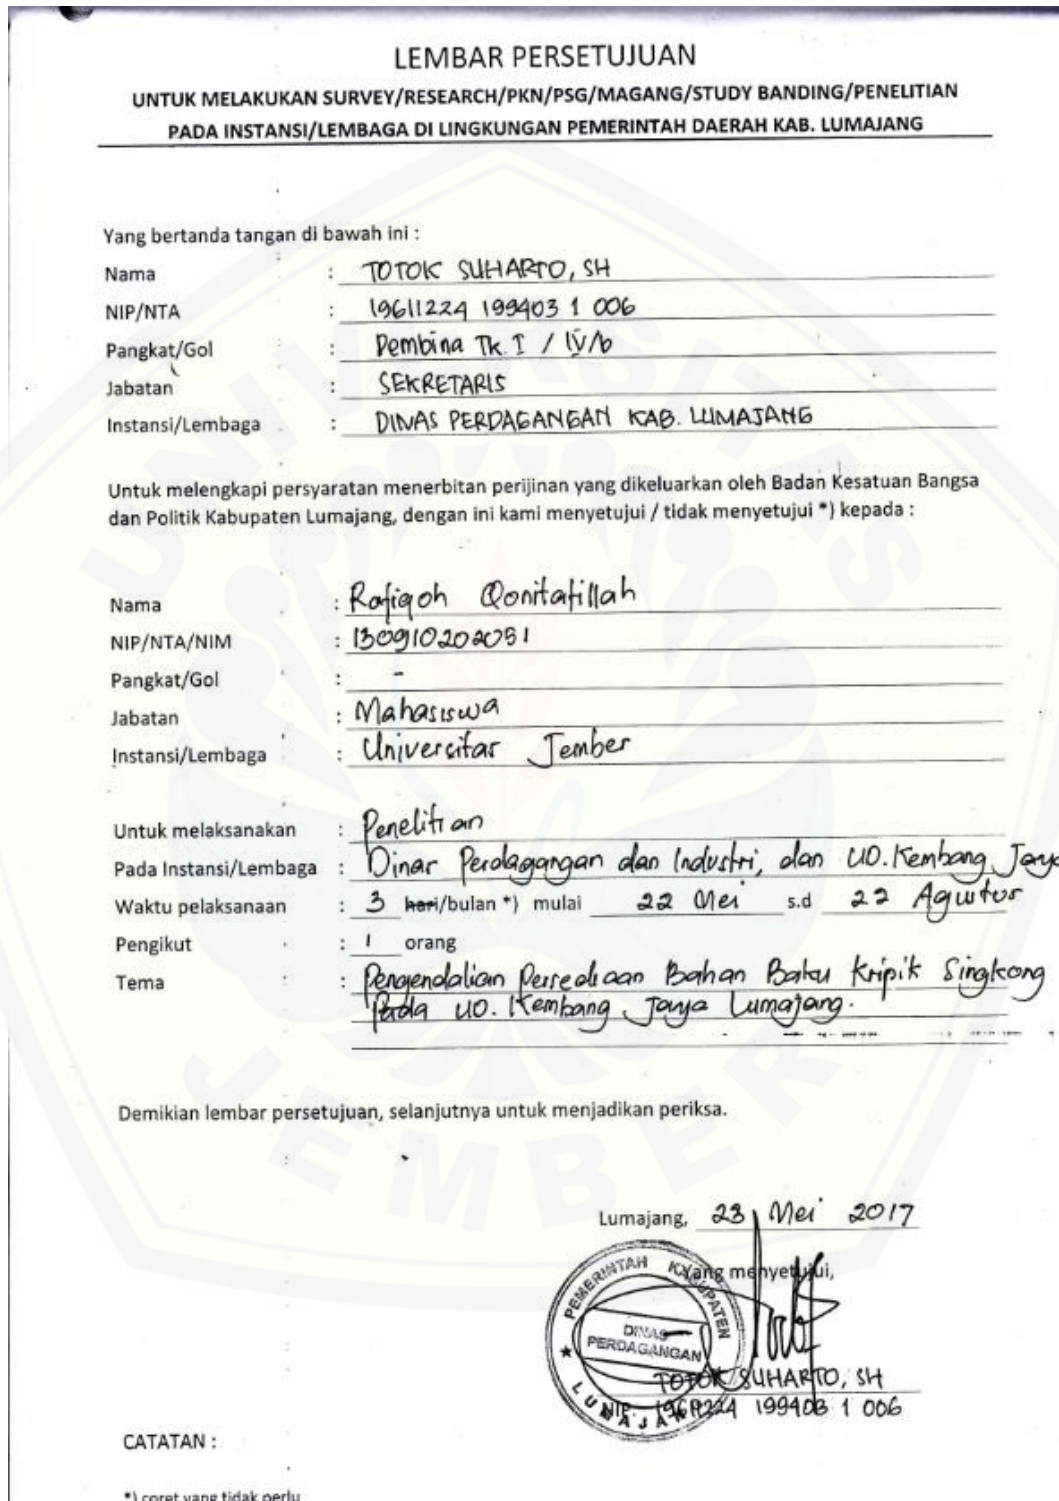 LEMBAR PERSETUJUAN
UNTUK MELAKUKAN SURVEY/RESEARCH/PKN/PSG/MAGANG/STUDY BANDING/PENELITIAN
PADA INSTANSI/LEMBAGA DI LINGKUNGAN PEMERINTAH DAERAH KAB. LUMAJANG
Yang bertanda tangan di bawah ini :
Nama : TOTOK SUHARTO, SH
NIP/NTA : 19611224 199403 1 006
Pangkat/Gol : Pembina Tk. I / IV/b
Jabatan : SEKRETARIS
Instansi/Lembaga : DINAS PERDAGANGAN KAB. LUMAJANG
Untuk melengkapi persyaratan menerbitan perijinan yang dikeluarkan oleh Badan Kesatuan Bangsa
dan Politik Kabupaten Lumajang, dengan ini kami menyetujui / tidak menyetujui *) kepada :
Nama : Rofiqoh Qonitafillah
NIP/NTA/NIM : 130910202051
Pangkat/Gol : -
Jabatan : Mahasiswa
Instansi/Lembaga : Universitas Jember
Untuk melaksanakan : Penelitian
Pada Instansi/Lembaga : Dinas Perdagangan dan Industri, dan UD. Kembang Jaya
Waktu pelaksanaan : 3 hari/bulan *) mulai 22 Mei s.d 22 Agustus
Pengikut : 1 orang
Tema : Pengendalian Persediaan Bahan Baku Kripik Singkong
Pada UD. Kembang Jaya Lumajang.
Demikian lembar persetujuan, selanjutnya untuk menjadikan periksa.
Lumajang, 23 Mei 2017
Yang menyetujui,
PEMERINTAH KABUPATEN
DINAS
PERDAGANGAN
LUMAJANG
TOTOK SUHARTO, SH
NIP. 19611224 199403 1 006
CATATAN :
*) coret yang tidak perlu
UNIVERSITAS
JEMBER